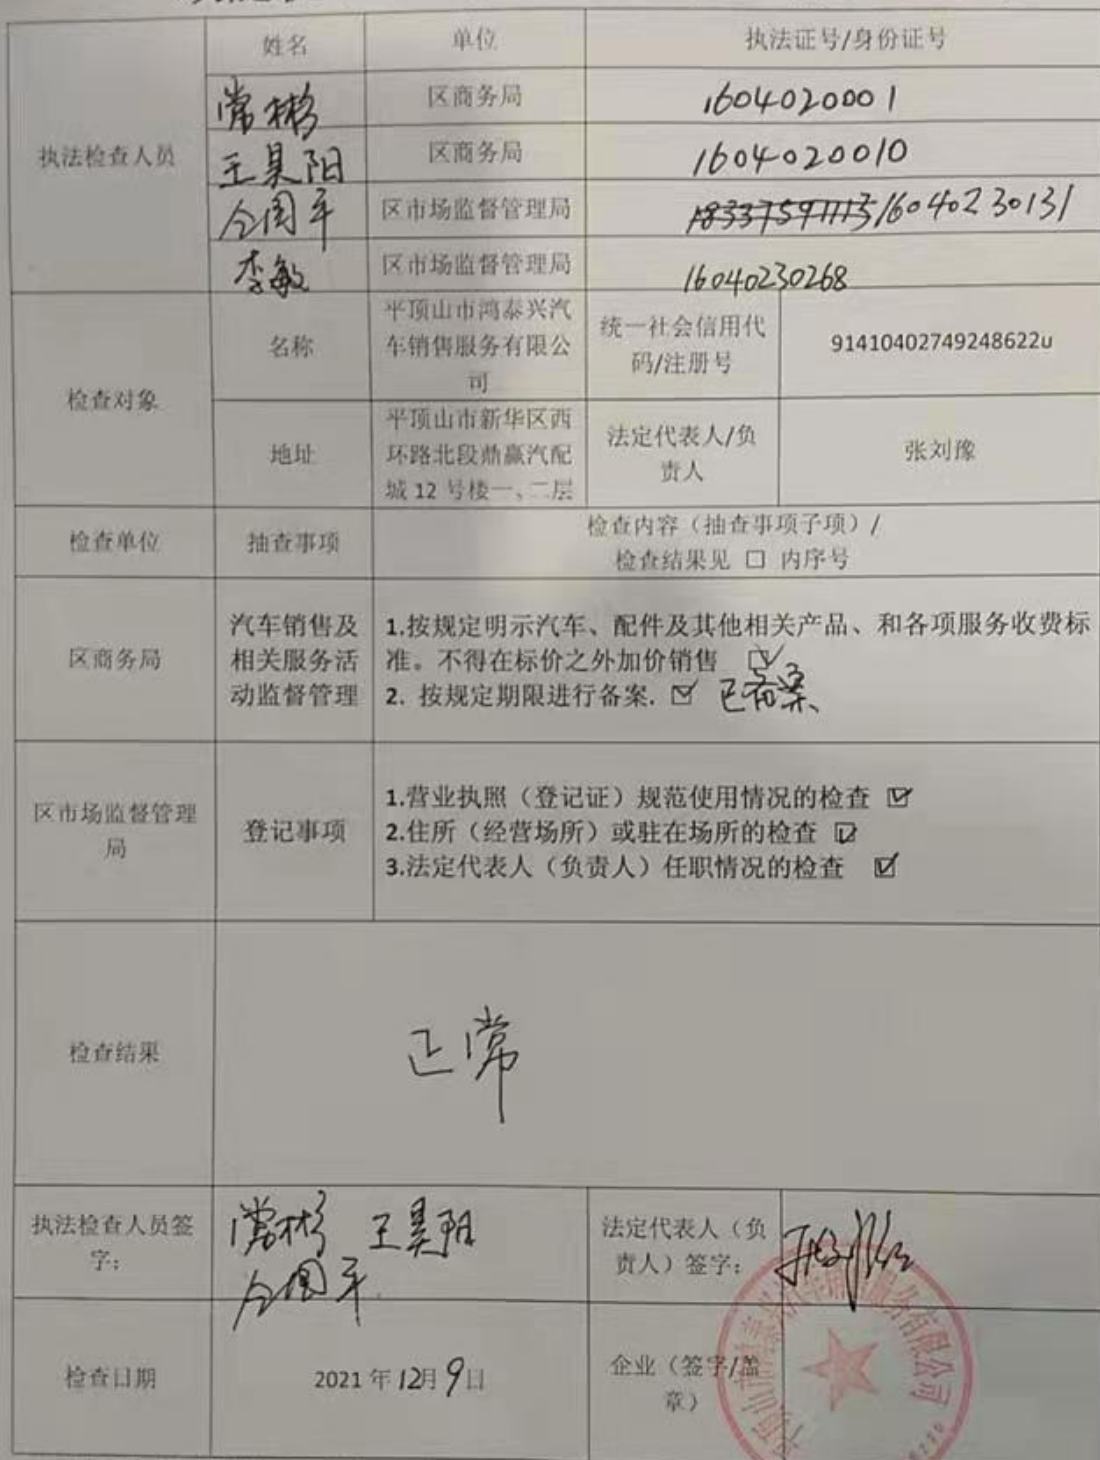 姓名 单位 执法证号/身份证号
执法检查人员
常彬 区商务局 1604020001
王昊阳 区商务局 1604020010
仝周平 区市场监督管理局 18337591113 16040230131
李敏 区市场监督管理局 16040230268
检查对象
名称
平顶山市鸿泰兴汽
车销售服务有限公
司
统一社会信用代
码/注册号
91410402749248622u
地址
平顶山市新华区西
环路北段鼎赢汽配
城 12 号楼一、二层
法定代表人/负
责人
张刘豫
检查单位 抽查事项
检查内容（抽查事项子项）/
检查结果见 □ 内序号
区商务局
汽车销售及
相关服务活
动监督管理
1.按规定明示汽车、配件及其他相关产品、和各项服务收费标
准。不得在标价之外加价销售 ☑
2. 按规定期限进行备案. ☑ 已备案、
区市场监督管理
局
登记事项
1.营业执照（登记证）规范使用情况的检查 ☑
2.住所（经营场所）或驻在场所的检查 ☑
3.法定代表人（负责人）任职情况的检查 ☑
检查结果
正常
执法检查人员签
字：
常彬 王昊阳
仝周平
法定代表人（负
责人）签字：
检查日期
2021 年 12月 9日
企业（签字/盖
章）